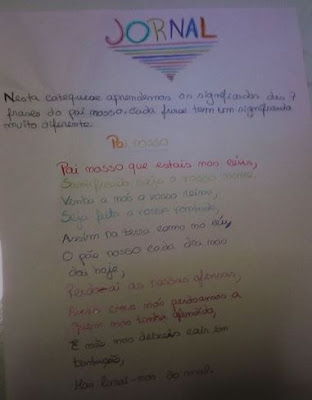 JORNAL
Nesta catequese aprendemos os significados das 7
frases do pai nosso. cada frase tem um significado
muito diferente.
Pai nosso
Pai nosso que estais nos céus,
Santificado seja o vosso nome,
Venha a nós o vosso reino,
Seja feita a vossa vontade,
Assim na terra como no céu,
O pão nosso cada dia nos
dai hoje,
Perdoai as nossas ofensas,
Assim como nós perdoamos a
Quem nos tenha ofendido,
E não nos deixeis cair em
tentação,
Mas livrai-nos do mal.